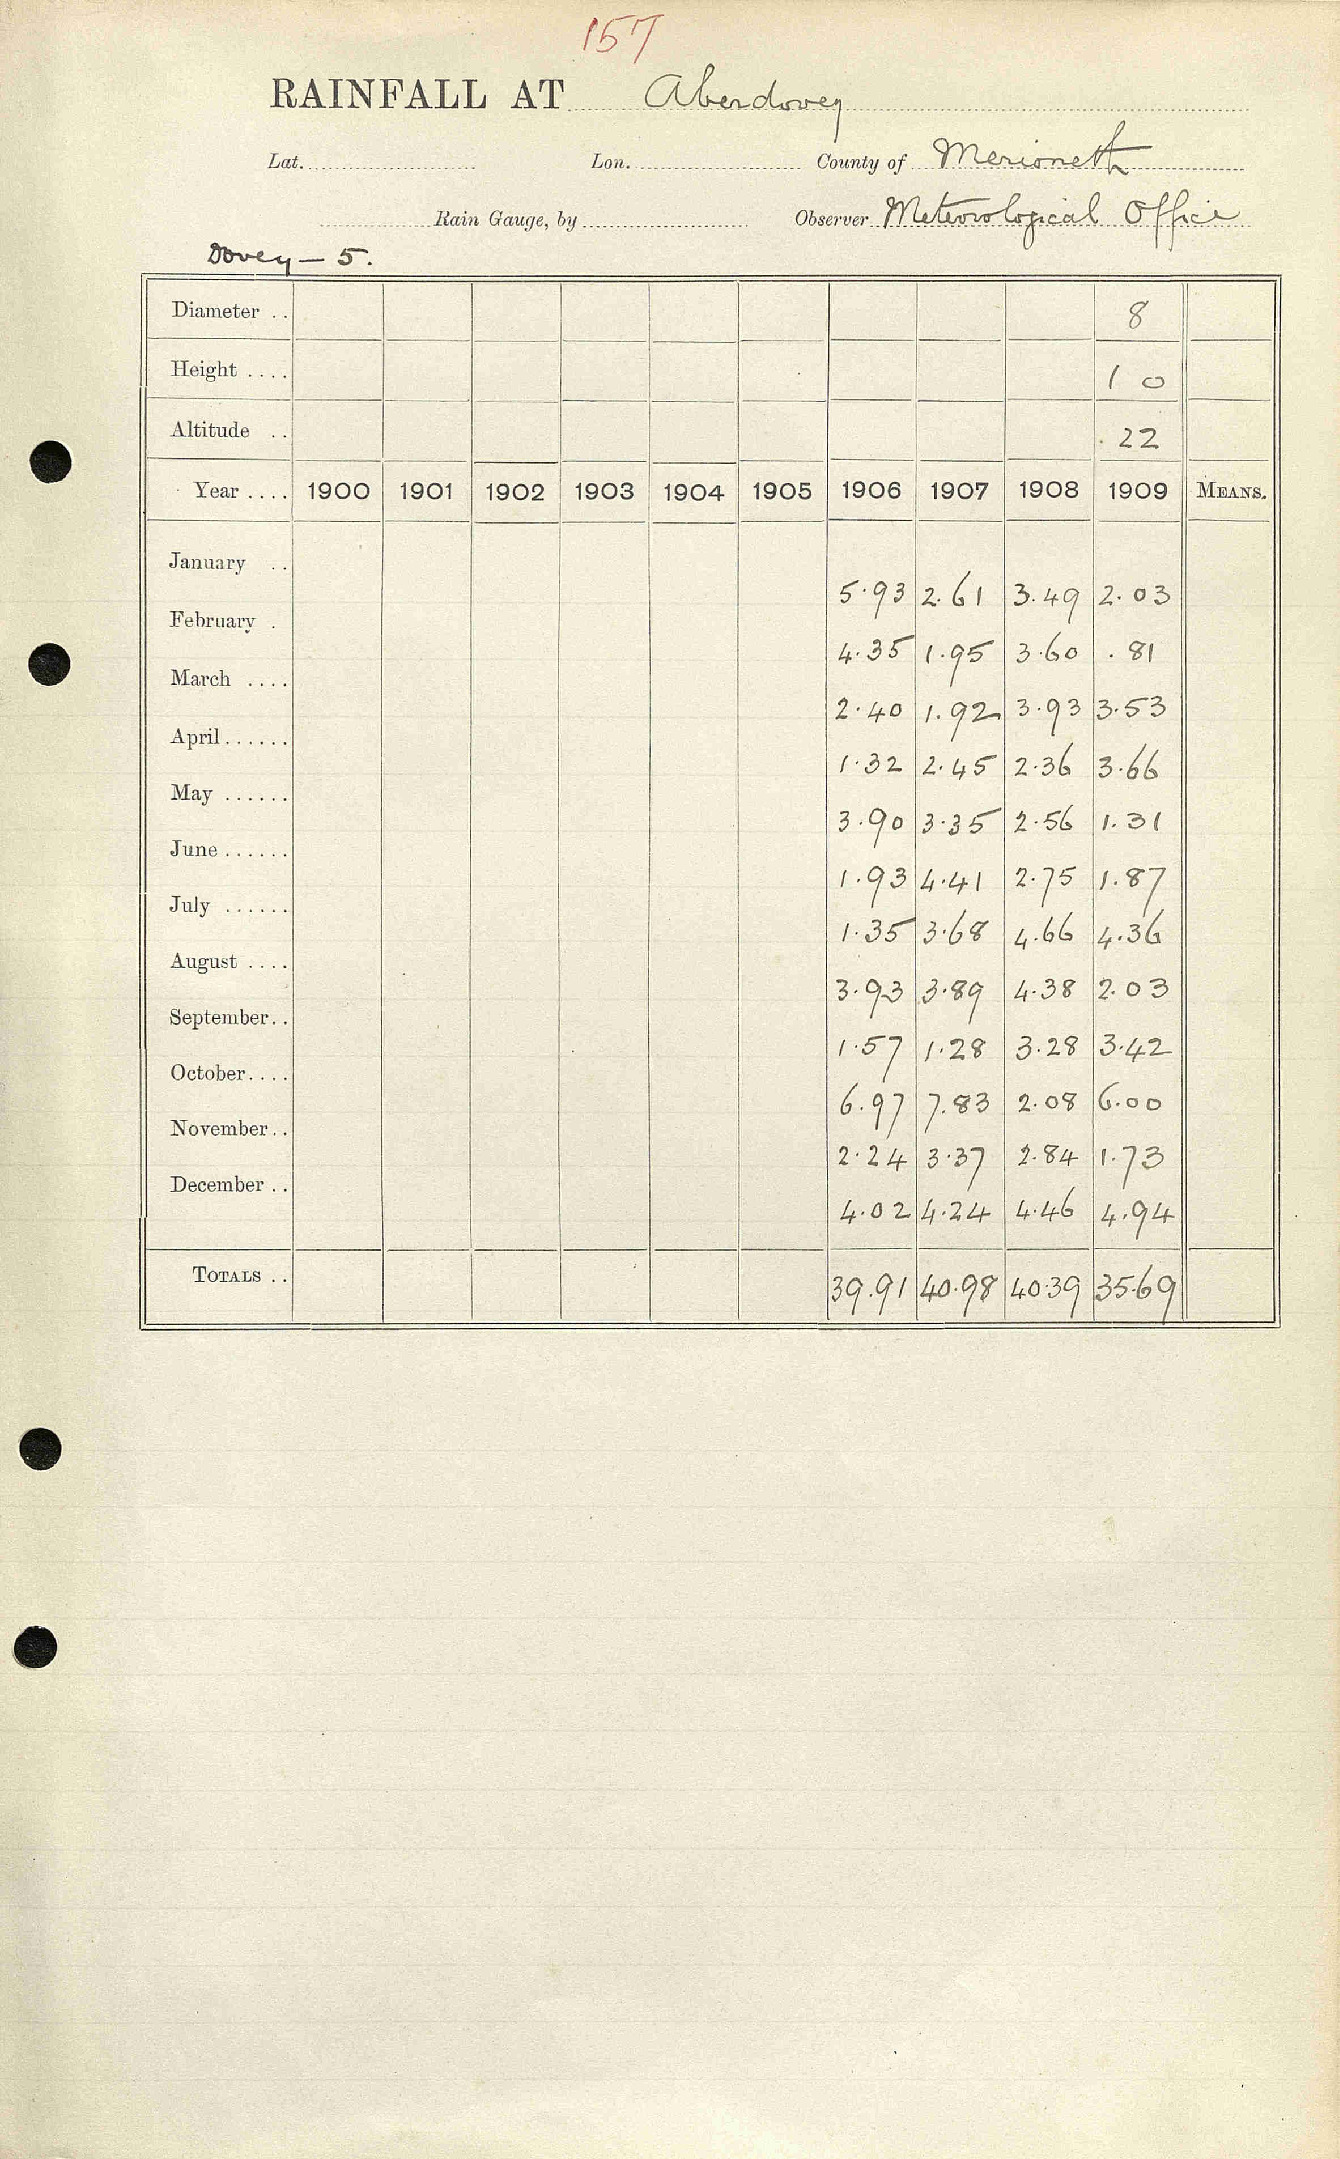 157
RAINFALL AT Aberdovey
Lat. Lon. County of Merioneth
Rain Gauge, by Observer Meteorological Office
Dovey - 5.
Diameter .. 8
Height .... 1 0
Altitude .. 22
Year .... 1900 1901 1902 1903 1904 1905 1906 1907 1908 1909 MEANS.
January ..
5.93 2.61 3.49 2.03
February .
4.35 1.95 3.60 .81
March ....
2.40 1.92 3.93 3.53
April......
1.32 2.45 2.36 3.66
May ......
3.90 3.35 2.56 1.31
June ......
1.93 4.41 2.75 1.87
July ......
1.35 3.68 4.66 4.36
August ....
3.93 3.89 4.38 2.03
September..
1.57 1.28 3.28 3.42
October....
6.97 7.83 2.08 6.00
November..
2.24 3.37 2.84 1.73
December ..
4.02 4.24 4.46 4.94
TOTALS .. 39.91 40.98 40.39 35.69